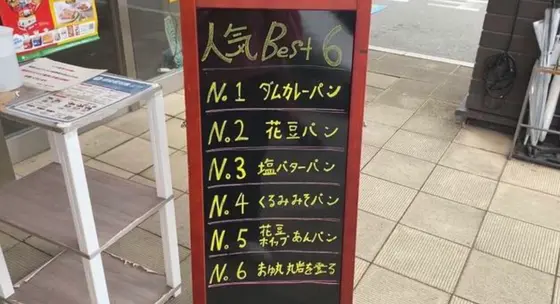 人気 Best 6
No.1 ダムカレーパン
No.2 花豆パン
No.3 塩バターパン
No.4 くるみみそパン
No.5 花豆
ホイップあんパン
No.6 丸岩を登る